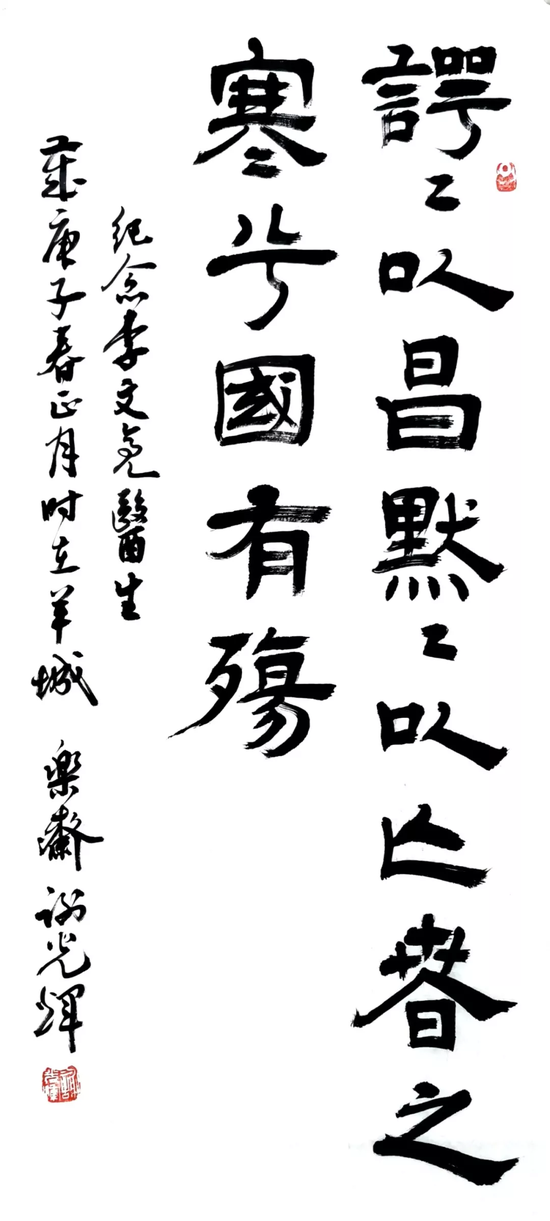 諤〻以昌默〻以亾春之
寒兮國有殤
纪念李文亮醫生
歲庚子春正月时在羊城 樂齋 谢光輝